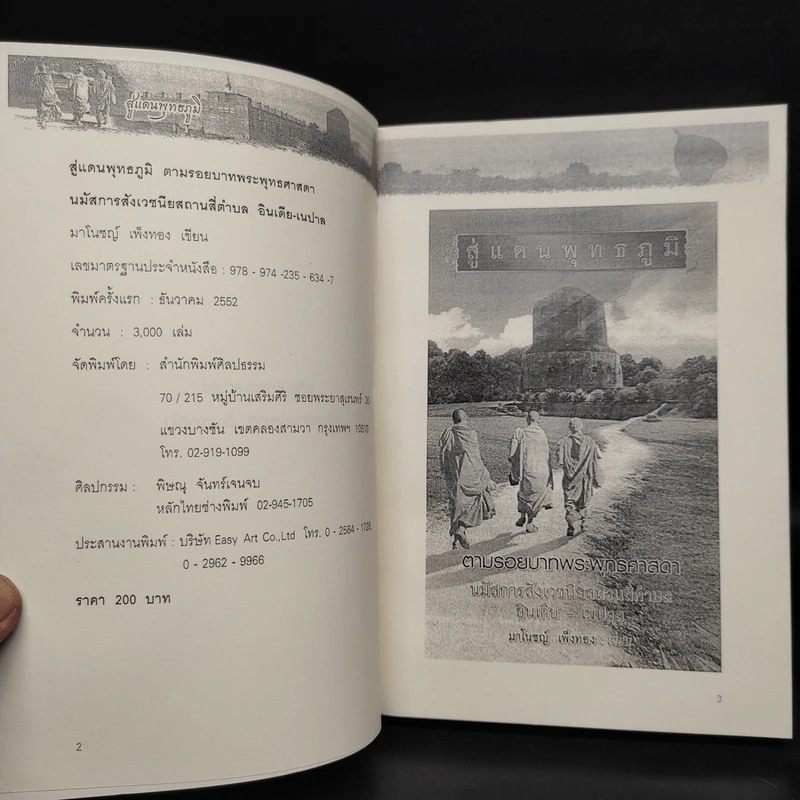 สู่แดนพุทธภูมิ
สู่แดนพุทธภูมิ ตามรอยบาทพระพุทธศาสดา
นมัสการสังเวชนียสถานสี่ตำบล อินเดีย-เนปาล
มาโนชญ์ เพ็งทอง เขียน
เลขมาตรฐานประจำหนังสือ : 978 - 974 -235 - 634 -7
พิมพ์ครั้งแรก : ธันวาคม 2552
จำนวน : 3,000 เล่ม
จัดพิมพ์โดย : สำนักพิมพ์ศิลปธรรม
70 / 215 หมู่บ้านเสริมศิริ ซอยพระยาสุเรนทร์ 30
แขวงบางชัน เขตคลองสามวา กรุงเทพฯ 10510
โทร. 02-919-1099
ศิลปกรรม : พิษณุ จันทร์เจนจบ
หลักไทยช่างพิมพ์ 02-945-1705
ประสานงานพิมพ์ : บริษัท Easy Art Co.,Ltd โทร. 0 - 2584 - 1728,
0 - 2962 - 9966
ราคา 200 บาท
2
สู่แดนพุทธภูมิ
ตามรอยบาทพระพุทธศาสดา
นมัสการสังเวชนียสถานสี่ตำบล
อินเดีย – เนปาล
มาโนชญ์ เพ็งทอง
3